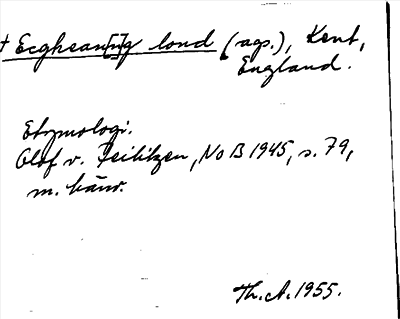 † Ecghean[in]g lond (ags.), Kent,
England.
Etymologi.
Olof v. Feilitzen, NoB 1945, s. 79,
m. hänv.
Th. A. 1955.